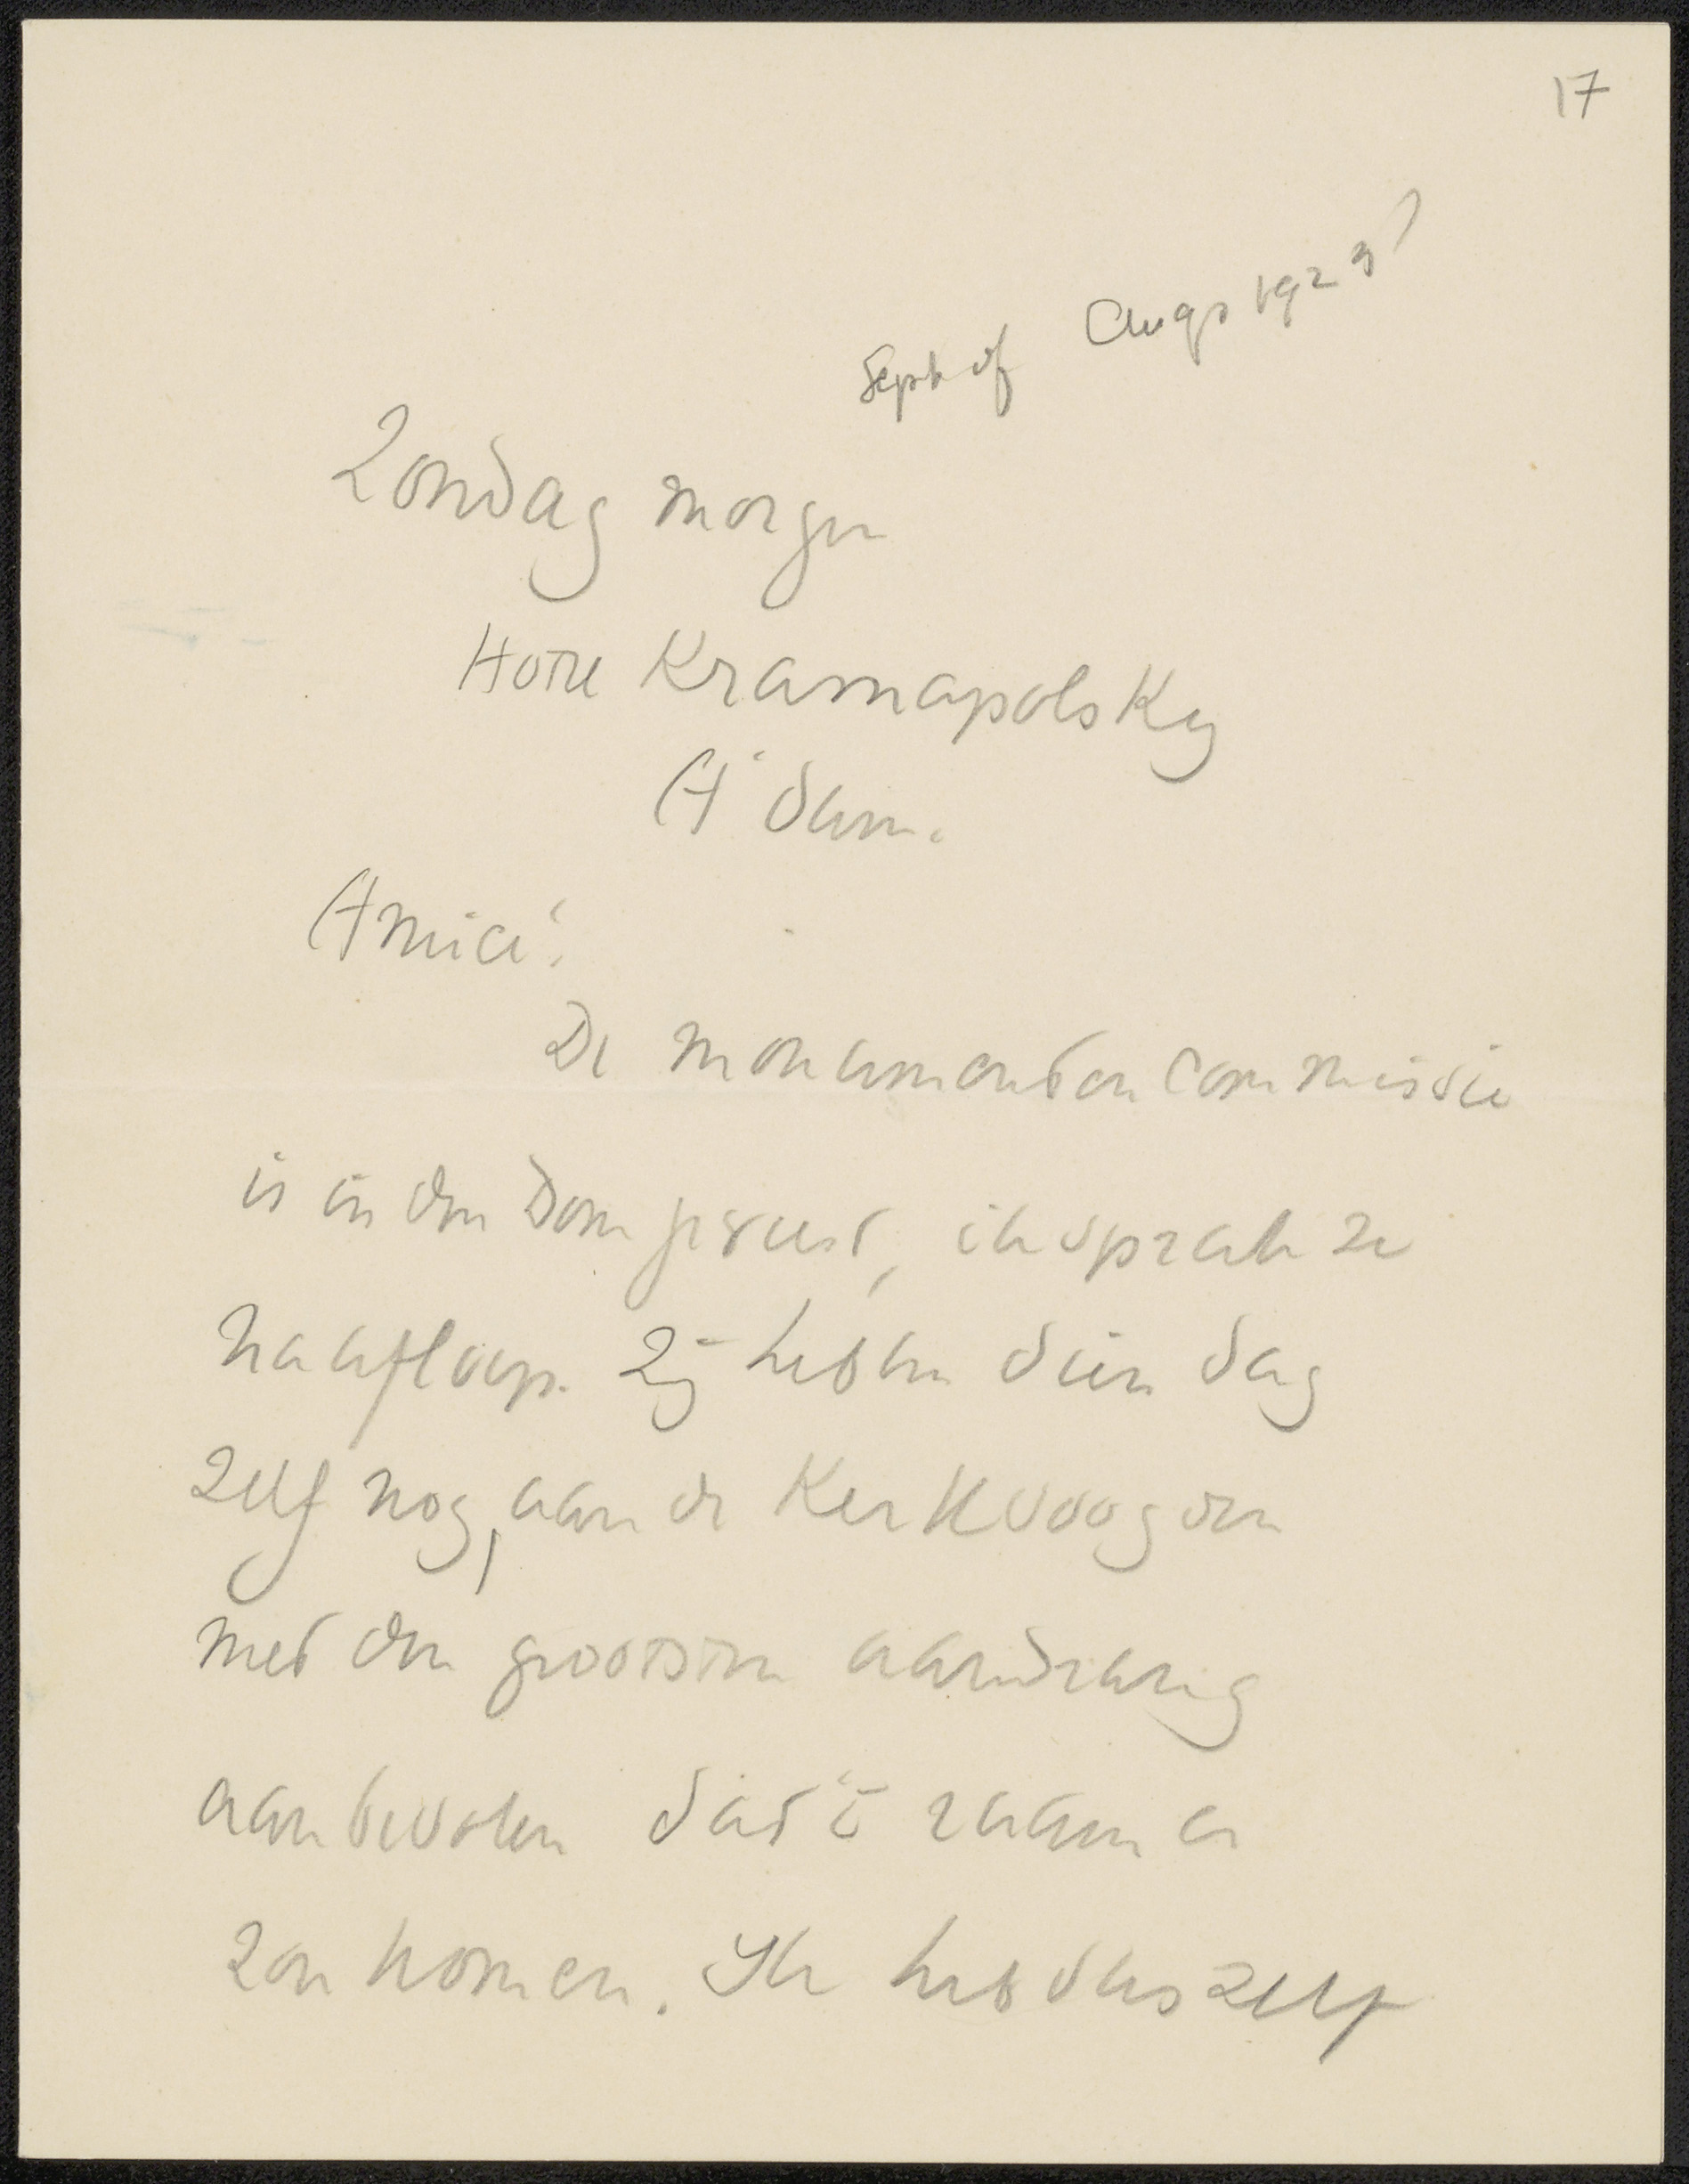 17
Sept of Augs 1923?
Zondag morgen
Hotel Kramapolsky
A'dam.
Amici!
De monumenten commissie
is in den Dom geweest, ik sprak ze
na afloop. Zij hebben dien dag
zelf nog, aan de Kerkvoogden
met den grootsten aandrang
aanbevolen dat 't raam er
zou komen. Ik heb dus zelf